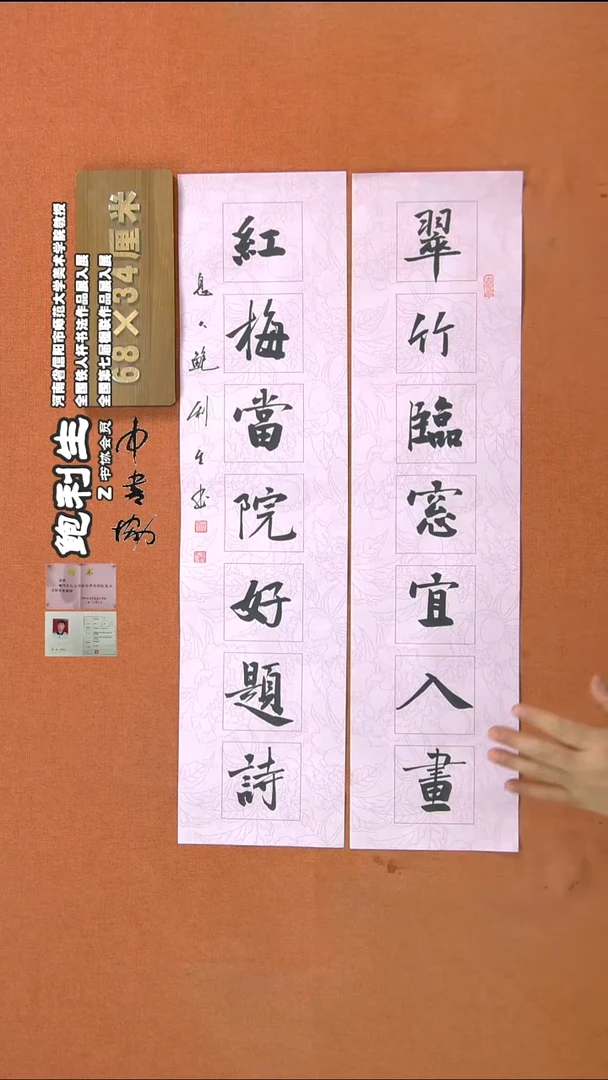 翠竹臨窓宜入畫
紅梅當院好題詩
鮑利生
68×34厘米
河南省信阳市师范大学美术学院教授
全国铁人杯书法作品展入展
全国第七届楹联作品展入展
鲍利生
书协会员